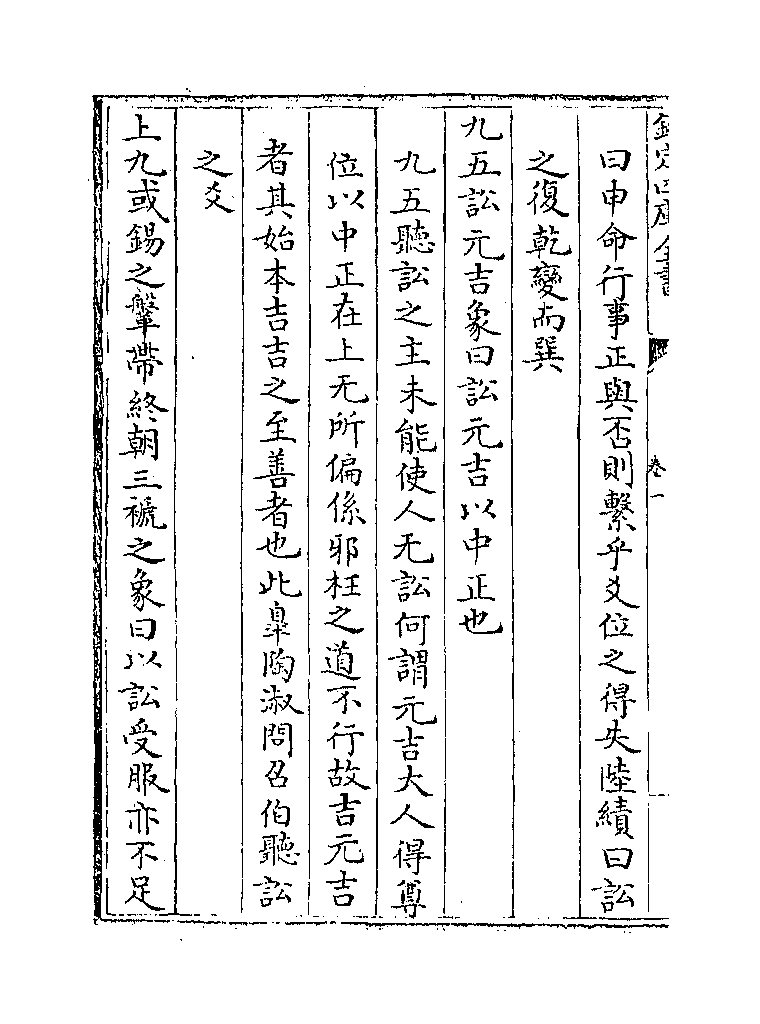 欽定四庫全書
卷一
曰申命行事正與否則繫乎爻位之得失陸績曰訟
之復乾變而巽
九五訟元吉象曰訟元吉以中正也
九五聽訟之主未能使人无訟何謂元吉大人得尊
位以中正在上无所偏係邪枉之道不行故吉元吉
者其始本吉吉之至善者也此臯陶淑問召伯聽訟
之爻
上九或錫之鞶帶終朝三褫之象曰以訟受服亦不足